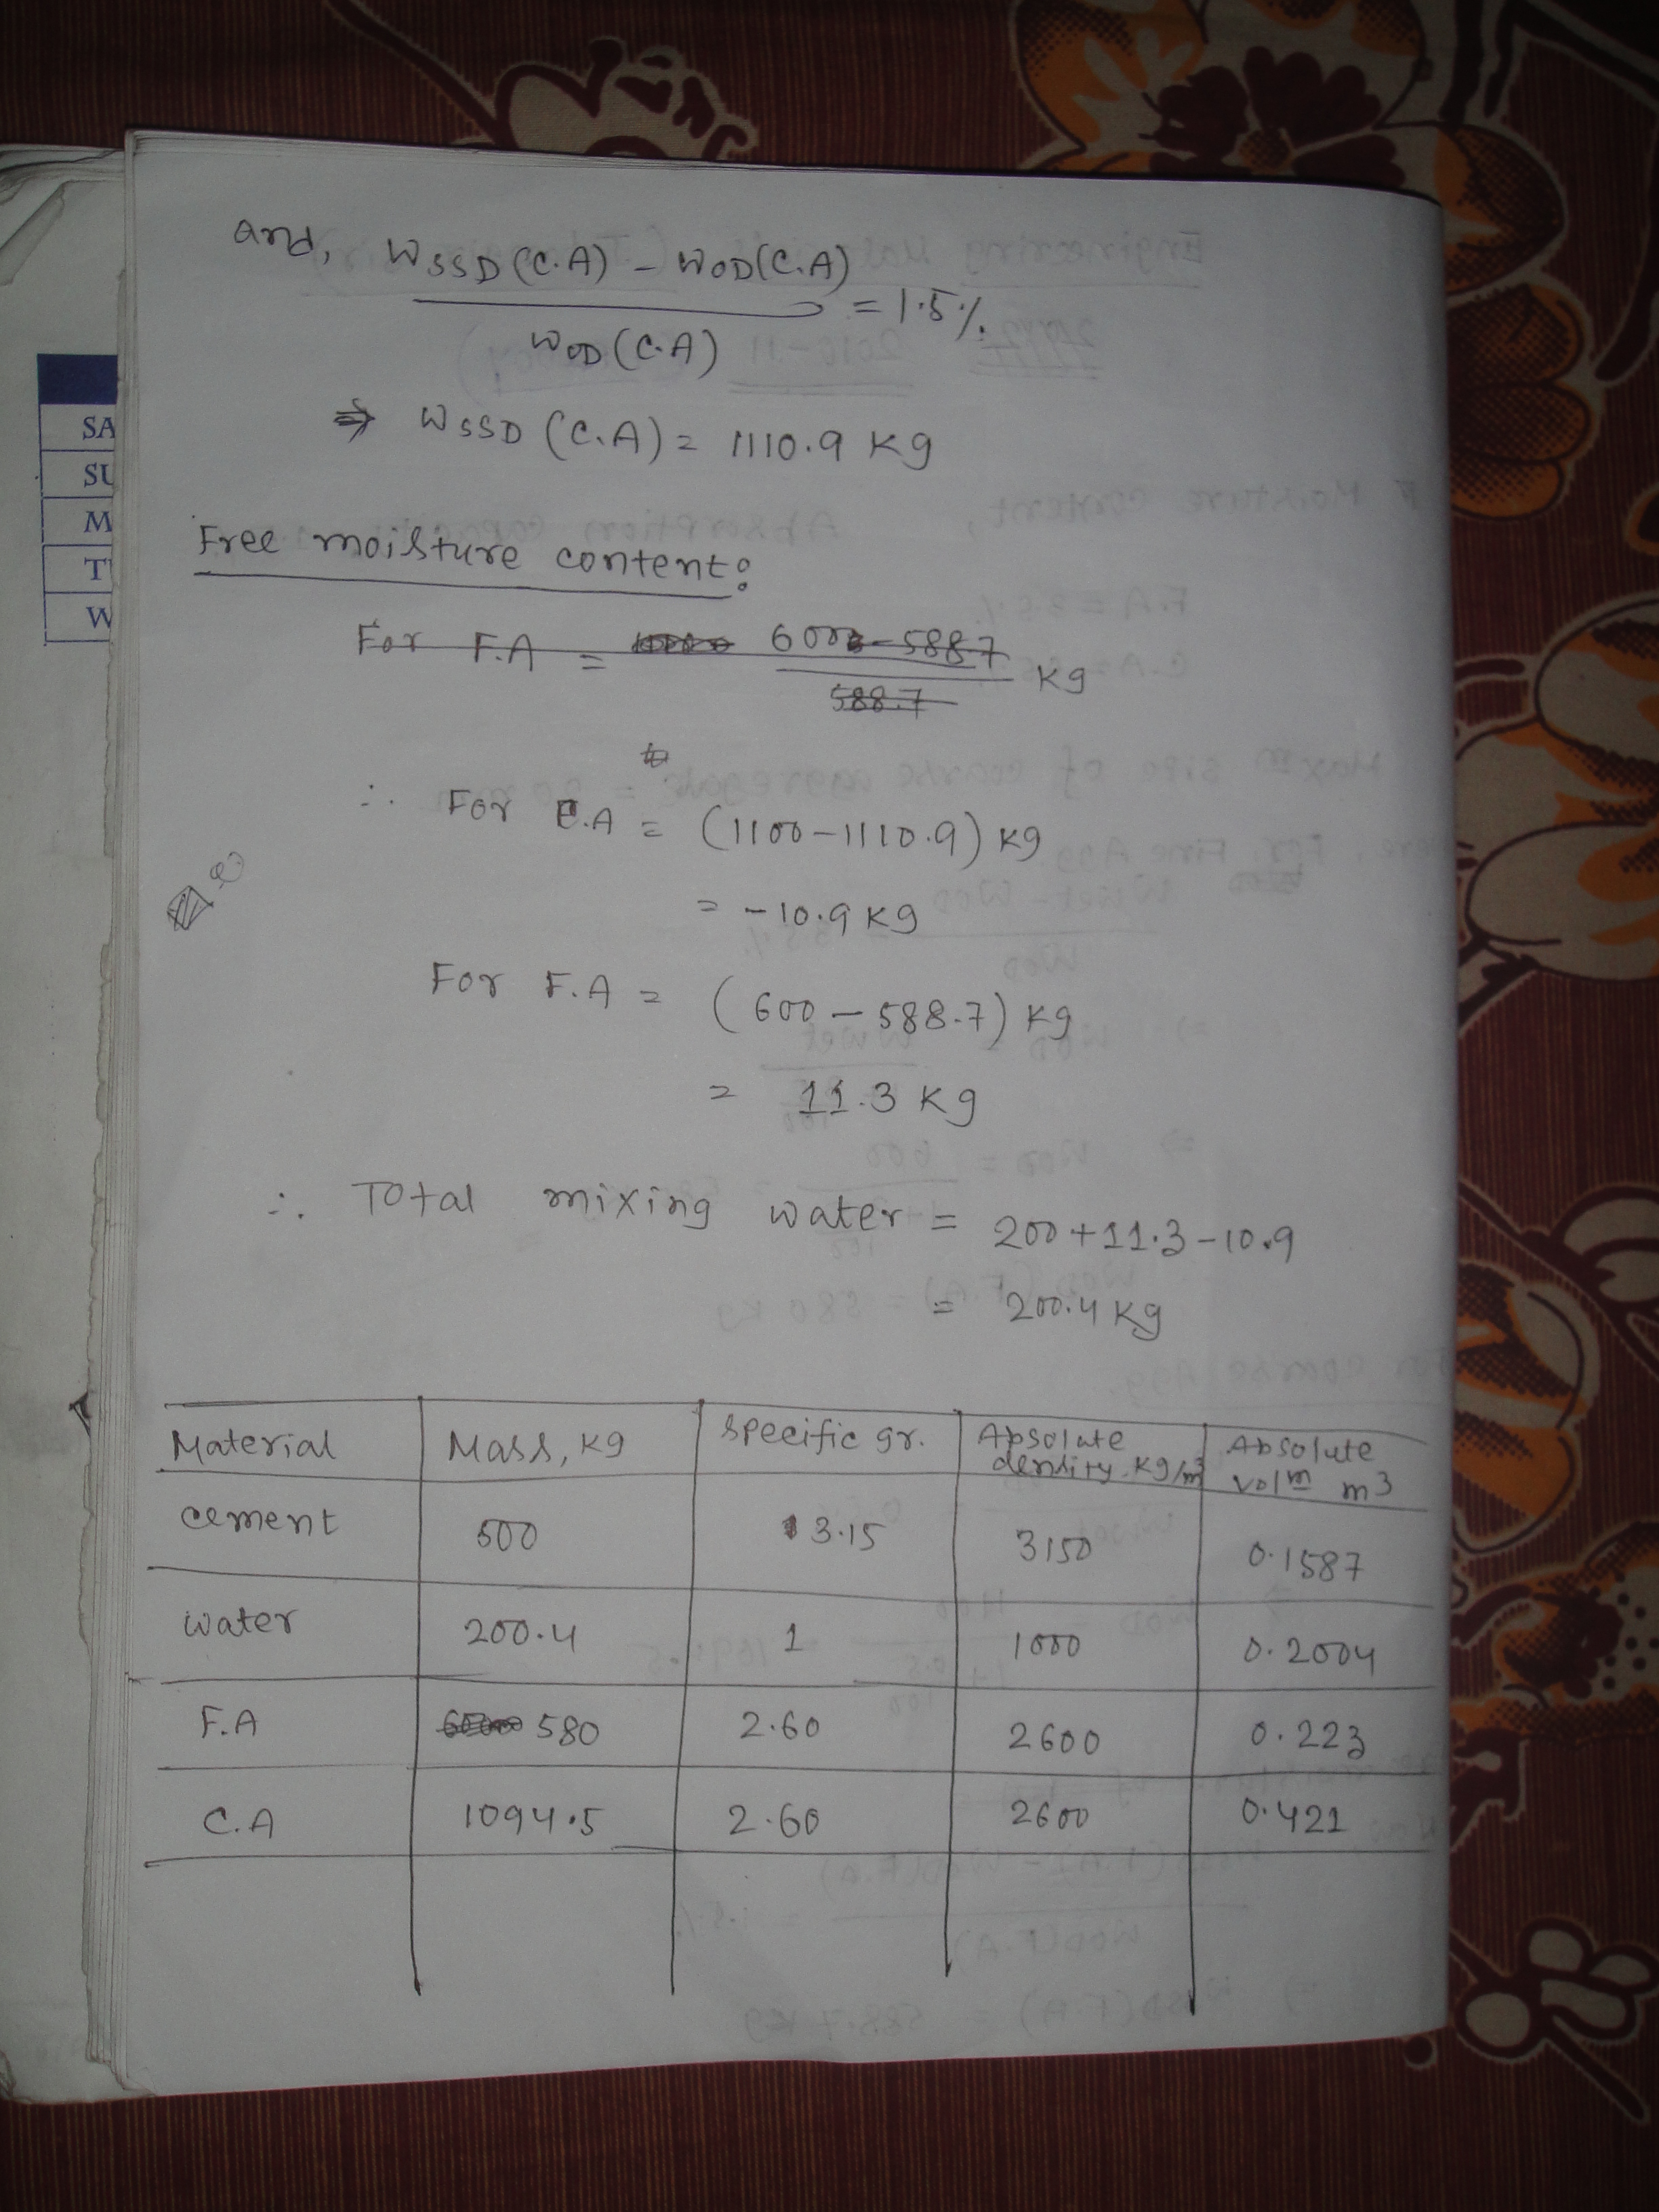 and, WSSD (C.A) - WOD(C.A)
= 1.5%.
WOD (C.A)
⇒ WSSD (C.A) = 1110.9 Kg
Free moisture content:
For F.A = 600 - 588.7 Kg
588.7
∴ For C.A = (1100-1110.9) Kg
= -10.9 Kg
For F.A = (600 - 588.7) Kg
= 11.3 Kg
∴ Total mixing water = 200 + 11.3 - 10.9
= 200.4 Kg
Material Mass, Kg Specific gr. Absolute density Kg/m3 Absolute volm m3
cement 500 3.15 3150 0.1587
water 200.4 1 1000 0.2004
F.A 580 2.60 2600 0.223
C.A 1094.5 2.60 2600 0.421
SA
SU
M
T
W